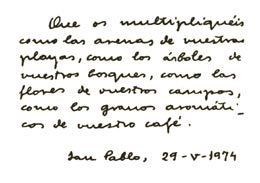 Que os multipliquéis
como las arenas de vuestras
playas, como los árboles de
vuestros bosques, como las
flores de vuestros campos,
como los granos aromáti-
cos de vuestro café.
Sao Pablo, 29-V-1974